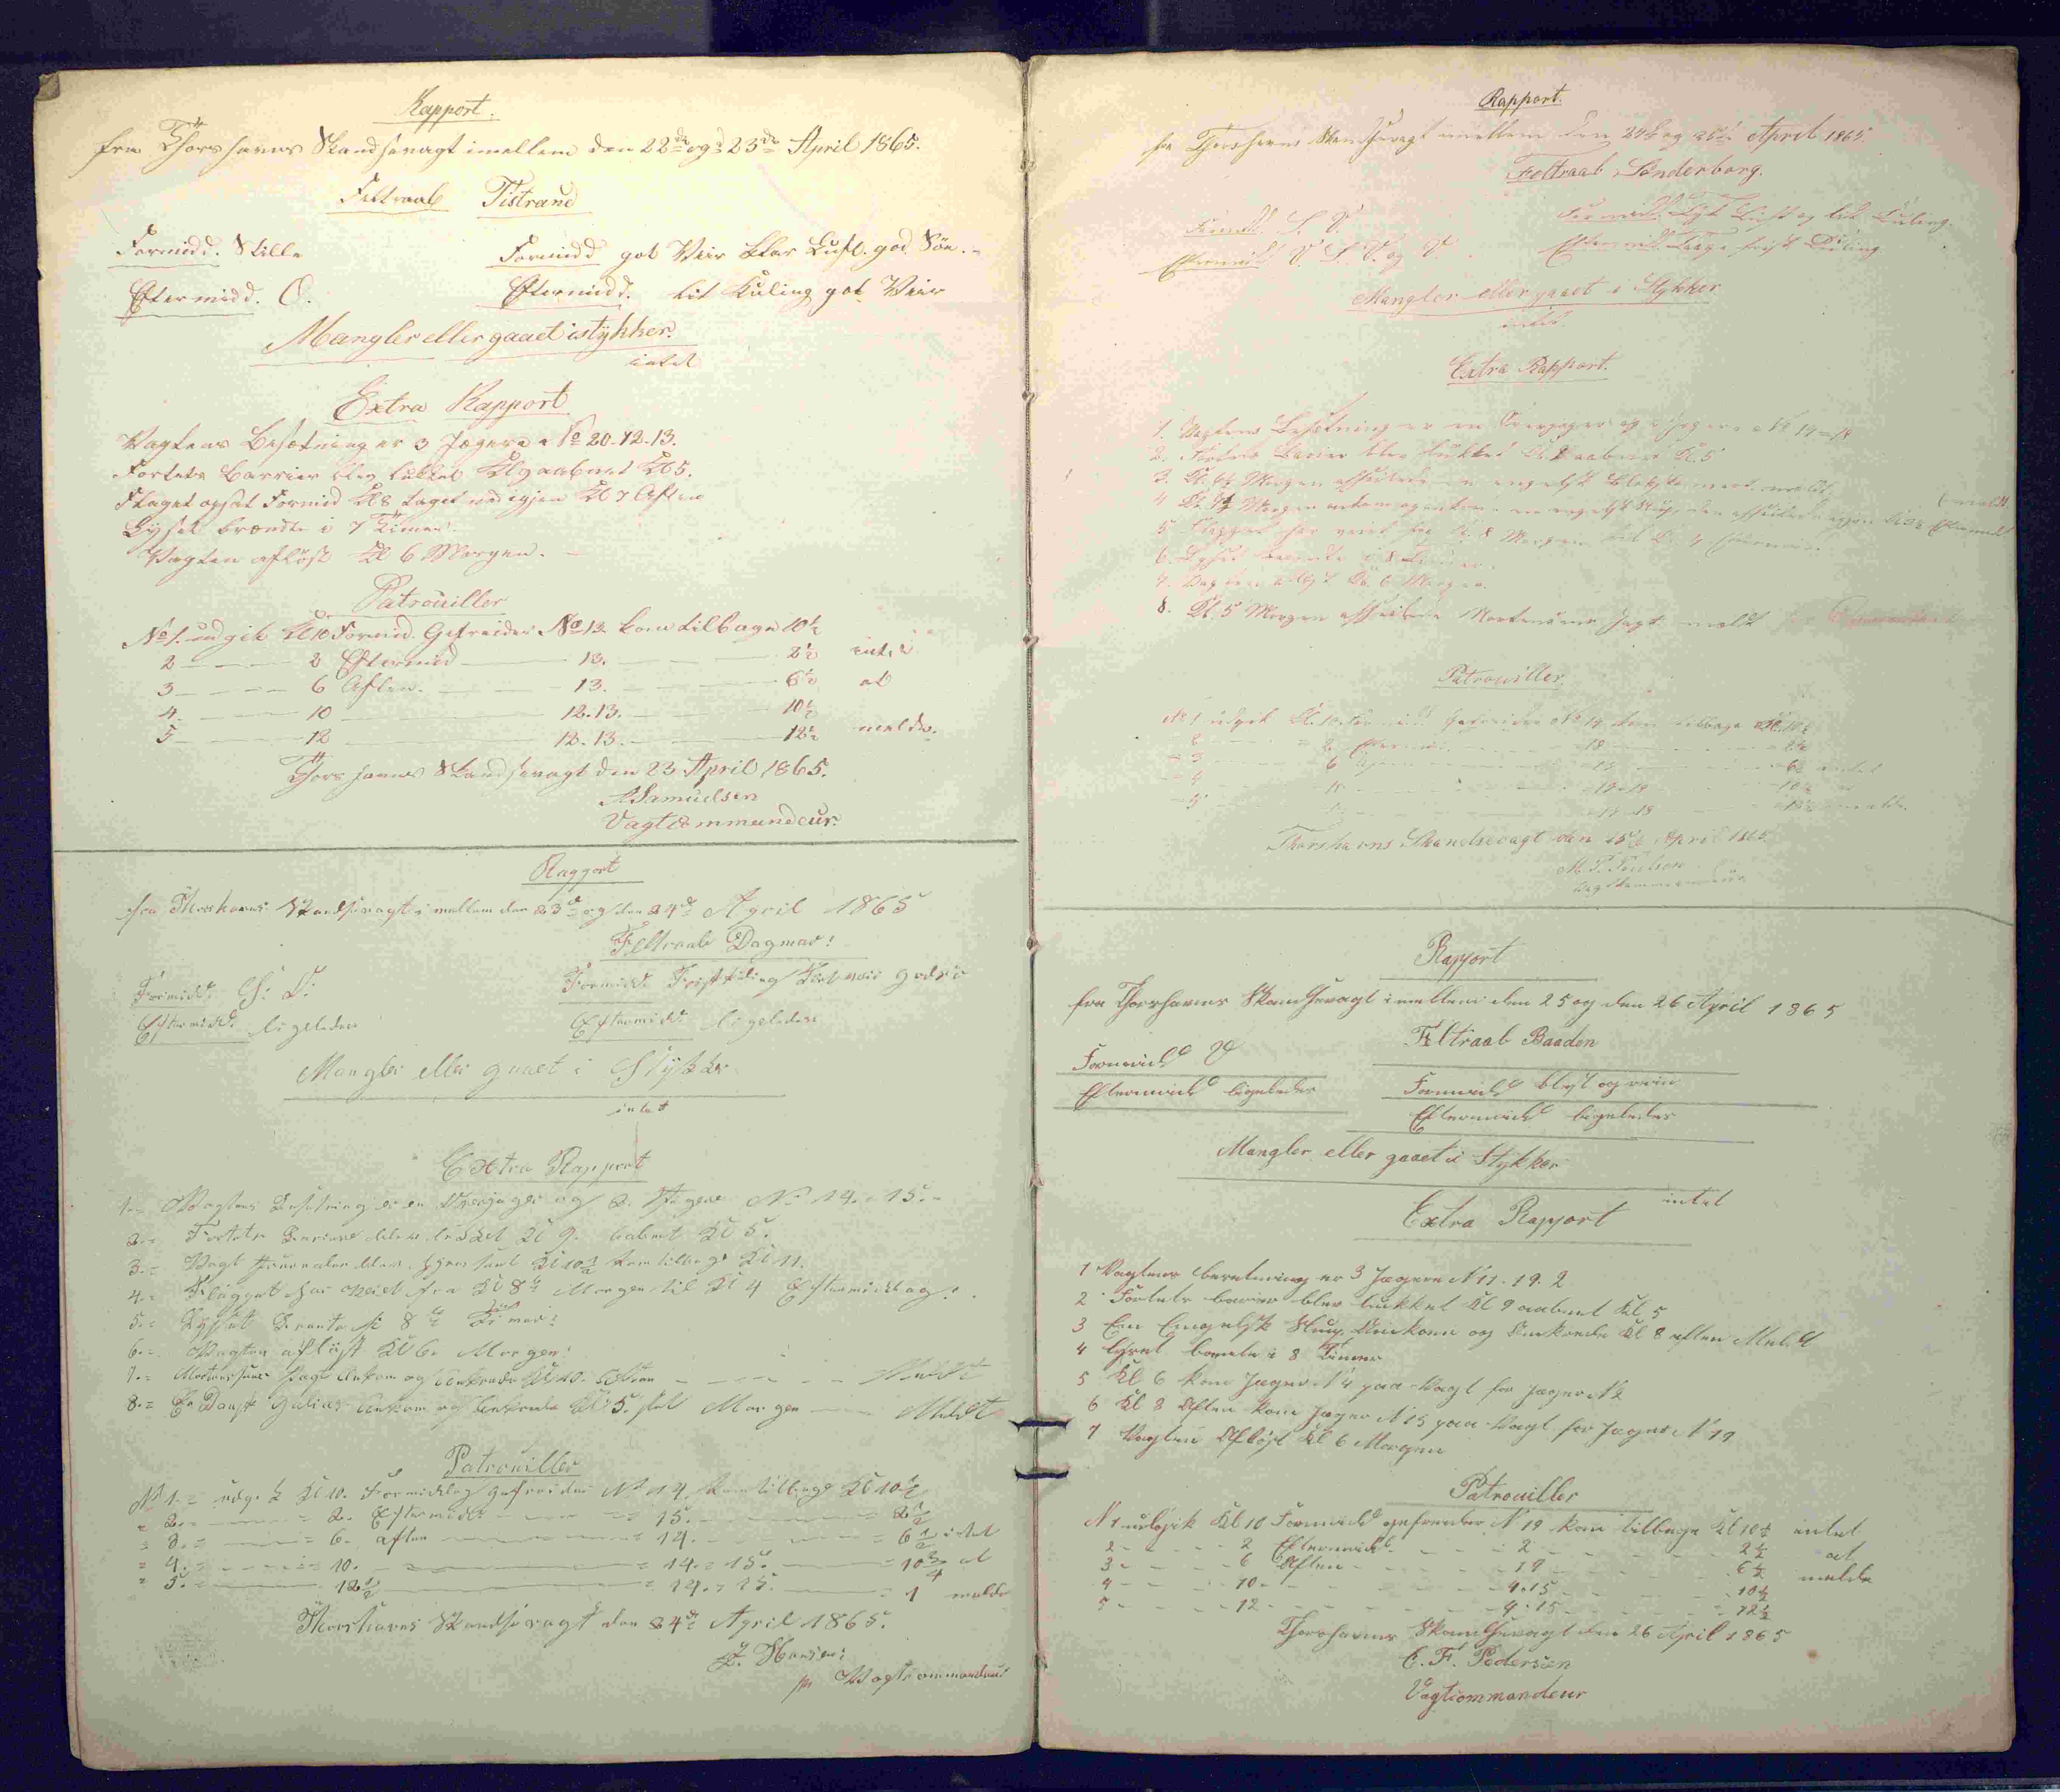 Rapport.
fra Thorshavns Skandsevagt imellem den 22de og 23de April 1865.
Feltraab Tistrand
Formidd. Stille Formidd got Veir klar Luft. god Sön.-
Eftermidd. O. Eftermidd. lit Kuling got Veir
Mangler eller gaaet istykker.
intet
Extra Rapport
Vagtens Besætning er 3 Jægere No 20-12-13.
Fortets Barrier blev lukket Kl 9 aabnet Kl 5.
Flaget opsat Formid Kl 8 taget ned igjen Kl 7 Aften
Lyset brændte i 7 Timer.
Vagten aflöst Kl 6 Morgen.-
Patrouiller
No 1. udgik Kl 10 Formid. Gefreider No 12 kom tilbage 10½
2 — 2 Eftermid — 13. — 2½ intet
3 — 6 Aften. — 13. — 6½ at
4. — 10 — 12.13. — 10½
5 — 12 — 12.13. — 12½ melde.
Thorshavns Skandsevagt den 23 April 1865.
Samuelsen
Vagtcommandeur.
Rapport
fra Thorshavns Skandsevagt imellem den 23de og den 24de April 1865
Feltraab Dagmar!
Formidd. S: V: Formidd. Frisk Kuling
Eftermidd. ligeledes Eftermidd. ligeledes
Mangler eller gaaet i Stykker
intet
Extra Rapport
1.= Vagtens Besætning er en Overjæger og 2. Jægere No 14.=15.=
2.= Fortets Barriere blev lukket Kl 9. aabnet Kl 5.
3.= Vagt Kl 10½ kom tilbage Kl 11.
4.= Flagget har veiet fra Kl 8 Morgen til Kl 4 Eftermiddag:
5.= Lyset brente i 8 Timer:
6.= Vagten aflöst Kl 6. Morgen:
7.= Jagt Ankom og Ankrede Kl 10. Aften — Meldt
8.= En Dansk Galias Ankom og Ankrede Kl 5. Morgen — Meldt
Patrouiller
No 1.= udgik Kl 10. Formiddag gefreider No 14 kom tilbage Kl 10½
= 2.= — = 2. Eftermidd. — = 15. — = 2½
= 3.= — = 6. aften — = 14. — = 6½ intet
= 4.= — = 10. — = 14.=15. — = 10¾ at
= 5.= — 12½ — = 14.=15. — = 1 melde
Thorshavns Skandsevagt den 24de April 1865.
Hansen:
Vagtcommandeur
Rapport.
fra Thorshavns Skandsevagt imellem den 24de og 25de April 1865.
Feltraab Sönderborg.
Formidd. S. V. Formidd. Tyk Luft og lidt Kuling.
Eftermid. V. S. V. og V. Eftermidd. frisk Kuling
Mangler eller gaaet i Stykker
intet.
Extra Rapport.
1. Vagtens Besætning er en Overjæger og 2 Jægere No 14=18
2. Fortets Barier blev lukket Kl. 9 aabnet Kl. 5
3. Kl. Morgen afseilede en engelsk meldt
4 Kl. Morgen en engelsk Slup, den afseilede igjen Eftermidd (meldt)
5 Flagget har veiet fra Kl. 8 Morgen til Kl. 4 Eftermid.
6. Lyset brændte i 8 Timer.
7. Vagten aflöst Kl. 6 Morgen.
8. Kl. 5 Morgen afseilede Mortensens Jagt meldt
Patrouiller
No 1 udgik Kl. 10 Formidd. Gefreider No 14 kom tilbage Kl. 10½
= 2 — = 2 Eftermid. — = 18 — = 2½
= 3 — 6 — — 6½ intet
= 4 — 10 — = 14=18 — = 10½ at
= 5 — — = 14=18 — = 12½ melde.
Thorshavns Skandsevagt den 25de April 1865.
M. P. Poulsen
Vagtkommandeur
Rapport
fra Thorshavns Skandsevagt imellem den 25 og den 26 April 1865
Feltraab Baaden
Formidd V Formidd blest og rein
Eftermidd ligeledes Eftermidd ligeledes
Mangler eller gaaet i Stykker
intet
Extra Rapport
1 Vagtens besetning er 3 Jægere N 11. 19. 2
2 Fortets barier blev lukket Kl 9 aabnet Kl 5
3 En Engelsk Slup Ankom og Ankrede Kl 8 aften Meldt
4 lyset brente i 8 Timer
5 Kl 6 kom Jæger N 4 paa Vagt for Jæger N 2
6 Kl 8 Aften kom Jæger N 15 paa Vagt for Jæger N 19
7 Vagten Aflöst Kl 6 Morgen
Patrouiller
N 1 udgik Kl 10 Formidd gefreider N 19 kom tilbage Kl 10½ intet
2 - - - - 2 Eftermidd - - - 2 - - - - 2½ at
3 - - - - 6 Aften - - - 19 - - - - 6½ melde
4 - - - - 10 - - - - 4.15 - - - - 10½
5 - - - - 12 - - - - 4.15 - - - - 12½
Thorshavns Skandsevagt den 26 April 1865
C. F. Pedersen
Vagtcommandeur